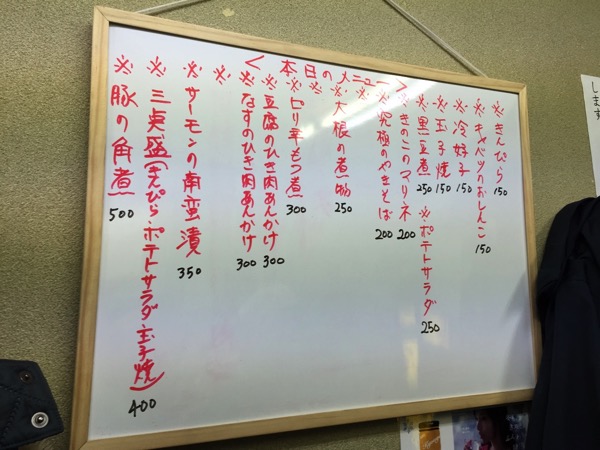 <本日のメニュー>
※きんぴら 150
※キャベツのおしんこ 150
※冷 150
※玉子焼 150
※黒豆煮 250
※ポテトサラダ 250
※きのこのマリネ 200
※究極のやきそば 200
※大根の煮物 250
※
※ピリ辛もつ煮 300
※豆腐のひき肉あんかけ 300
※なすのひき肉あんかけ 300
※
※サーモンの南蛮漬 350
※三点盛(きんぴら・ポテトサラダ・玉子焼) 400
※豚の角煮 500
します